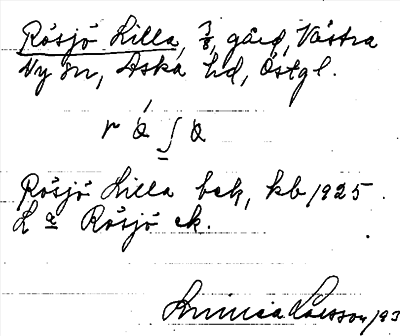 Rösjö Lilla, 7/8, gård, Västra
Ny sn, Aska hd, Östgl.
Rösjö Lilla bek, kb 1925.
L a Rösjö ek.
Larsson 193